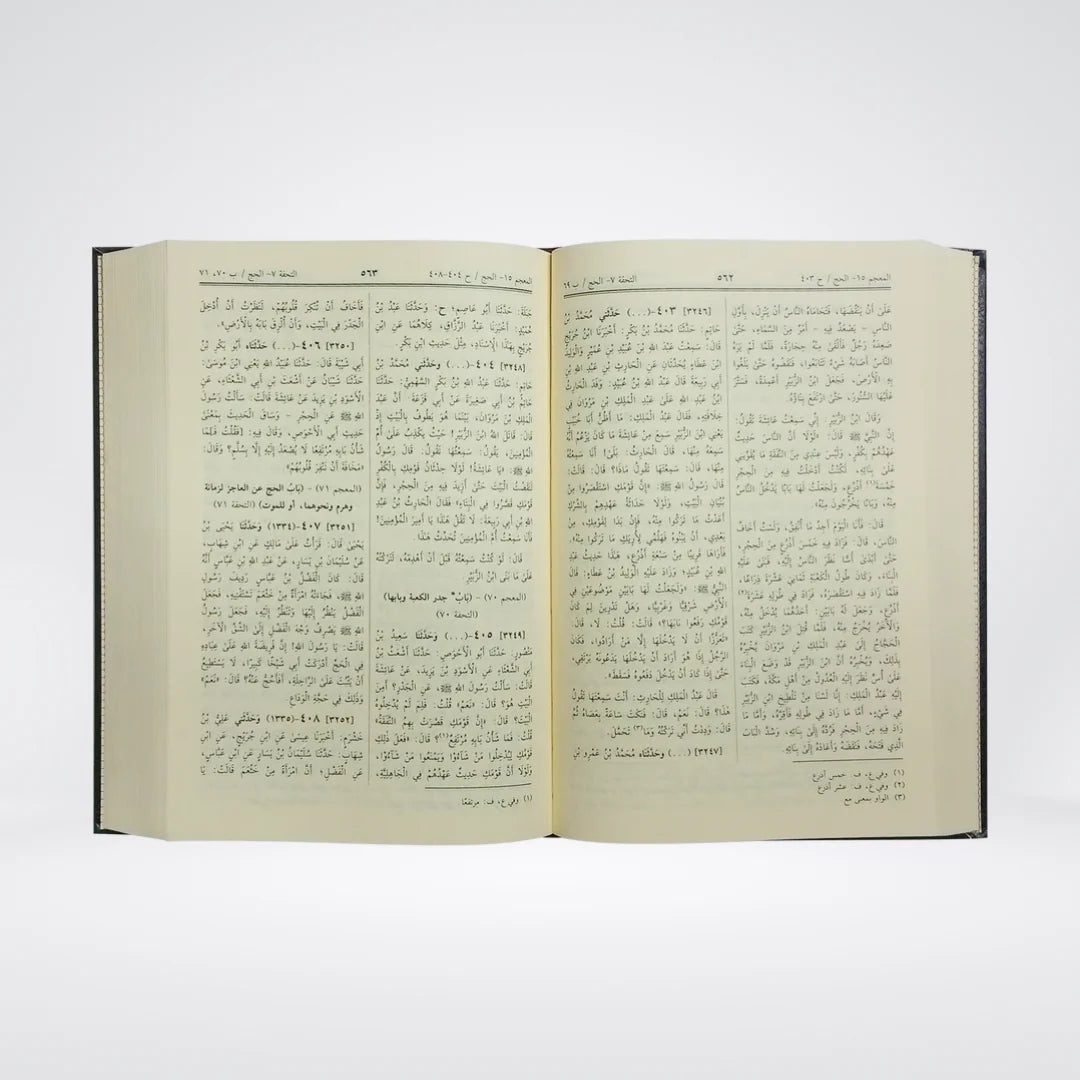 المعجم ١٥- الحج / ح ٤٠٣
٥٦٢
التحفة ٧- الحج / ب ٦٩
عَلَىٰ أَنْ يَنْقُضَهَا، فَتَحَامَاهُ النَّاسُ أَنْ يَنْزِلَ، بِأَوَّلِ
النَّاسِ - يَصْعَدُ فِيهِ - أَمْرٌ مِنَ السَّمَاءِ، حَتَّىٰ
صَعِدَهُ رَجُلٌ فَأَلْقَىٰ مِنْهُ حِجَارَةً، فَلَمَّا لَمْ يَرَهُ
النَّاسُ أَصَابَهُ شَيْءٌ تَتَابَعُوا، فَنَقَضُوهُ حَتَّىٰ بَلَغُوا
بِهِ الْأَرْضَ، فَجَعَلَ ابْنُ الزُّبَيْرِ أَعْمِدَةً، فَسَتَّرَ
عَلَيْهَا السُّتُورَ، حَتَّىٰ ارْتَفَعَ بِنَاؤُهُ.
وَقَالَ ابْنُ الزُّبَيْرِ: إِنِّي سَمِعْتُ عَائِشَةَ تَقُولُ:
إِنَّ النَّبِيَّ ﷺ قَالَ: «لَوْلَا أَنَّ النَّاسَ حَدِيثٌ
عَهْدُهُمْ بِكُفْرٍ، وَلَيْسَ عِنْدِي مِنَ النَّفَقَةِ مَا يُقَوِّينِي
عَلَىٰ بِنَائِهِ، لَكُنْتُ أَدْخَلْتُ فِيهِ مِنَ الْحِجْرِ
خَمْسَةَ(١) أَذْرُعٍ، وَلَجَعَلْتُ لَهَا بَابًا يَدْخُلُ النَّاسُ
مِنْهُ، وَبَابًا يَخْرُجُونَ مِنْهُ».
قَالَ: فَأَنَا الْيَوْمَ أَجِدُ مَا أُنْفِقُ، وَلَسْتُ أَخَافُ
النَّاسَ، قَالَ: فَزَادَ فِيهِ خَمْسَ أَذْرُعٍ مِنَ الْحِجْرِ،
حَتَّىٰ أَبْدَىٰ أُسًّا نَظَرَ النَّاسُ إِلَيْهِ، فَبَنَىٰ عَلَيْهِ
الْبِنَاءَ، وَكَانَ طُولُ الْكَعْبَةِ ثَمَانِيَ عَشْرَةَ ذِرَاعًا،
فَلَمَّا زَادَ فِيهِ اسْتَقْصَرَهُ، فَزَادَ فِي طُولِهِ عَشْرَةَ(٢)
أَذْرُعٍ، وَجَعَلَ لَهُ بَابَيْنِ: أَحَدُهُمَا يُدْخَلُ مِنْهُ،
وَالْآخَرُ يُخْرَجُ مِنْهُ، فَلَمَّا قُتِلَ ابْنُ الزُّبَيْرِ كَتَبَ
الْحَجَّاجُ إِلَىٰ عَبْدِ الْمَلِكِ بْنِ مَرْوَانَ يُخْبِرُهُ
بِذَٰلِكَ، وَيُخْبِرُهُ أَنَّ ابْنَ الزُّبَيْرِ قَدْ وَضَعَ الْبِنَاءَ
عَلَىٰ أُسٍّ نَظَرَ إِلَيْهِ الْعُدُولُ مِنْ أَهْلِ مَكَّةَ، فَكَتَبَ
إِلَيْهِ عَبْدُ الْمَلِكِ: إِنَّا لَسْنَا مِنْ تَلْطِيخِ ابْنِ الزُّبَيْرِ
فِي شَيْءٍ، أَمَّا مَا زَادَ فِي طُولِهِ فَأَقِرَّهُ، وَأَمَّا مَا
زَادَ فِيهِ مِنَ الْحِجْرِ فَرُدَّهُ إِلَىٰ بِنَائِهِ، وَسُدَّ الْبَابَ
الَّذِي فَتَحَهُ، فَنَقَضَهُ وَأَعَادَهُ إِلَىٰ بِنَائِهِ.
[٣٢٤٦] ٤٠٣-(...) حَدَّثَنِي مُحَمَّدُ بْنُ
حَاتِمٍ: حَدَّثَنَا مُحَمَّدُ بْنُ بَكْرٍ: أَخْبَرَنَا ابْنُ جُرَيْجٍ
قَالَ: سَمِعْتُ عَبْدَ اللهِ بْنَ عُبَيْدِ بْنِ عُمَيْرٍ وَالْوَلِيدَ
ابْنَ عَطَاءٍ يُحَدِّثَانِ عَنِ الْحَارِثِ بْنِ عَبْدِ اللهِ بْنِ
أَبِي رَبِيعَةَ قَالَ عَبْدُ اللهِ بْنُ عُبَيْدٍ: وَفَدَ الْحَارِثُ
بْنُ عَبْدِ اللهِ عَلَىٰ عَبْدِ الْمَلِكِ بْنِ مَرْوَانَ فِي
خِلَافَتِهِ، فَقَالَ عَبْدُ الْمَلِكِ: مَا أَظُنُّ أَبَا خُبَيْبٍ
يَعْنِي ابْنَ الزُّبَيْرِ سَمِعَ مِنْ عَائِشَةَ مَا كَانَ يَزْعُمُ أَنَّهُ
سَمِعَهُ مِنْهَا، قَالَ الْحَارِثُ: بَلَىٰ! أَنَا سَمِعْتُهُ
مِنْهَا، قَالَ: سَمِعْتَهَا تَقُولُ مَاذَا؟ قَالَ: قَالَتْ:
قَالَ رَسُولُ اللهِ ﷺ: «إِنَّ قَوْمَكِ اسْتَقْصَرُوا مِنْ
بُنْيَانِ الْبَيْتِ، وَلَوْلَا حَدَاثَةُ عَهْدِهِمْ بِالشِّرْكِ
أَعَدْتُ مَا تَرَكُوا مِنْهُ، فَإِنْ بَدَا لِقَوْمِكِ، مِنْ
بَعْدِي، أَنْ يَبْنُوهُ فَهَلُمِّي لِأُرِيَكِ مَا تَرَكُوا مِنْهُ».
فَأَرَاهَا قَرِيبًا مِنْ سَبْعَةِ أَذْرُعٍ، هَٰذَا حَدِيثُ عَبْدِ
اللهِ بْنِ عُبَيْدٍ؛ وَزَادَ عَلَيْهِ الْوَلِيدُ بْنُ عَطَاءٍ: قَالَ
النَّبِيُّ ﷺ: «وَلَجَعَلْتُ لَهَا بَابَيْنِ مَوْضُوعَيْنِ فِي
الْأَرْضِ شَرْقِيًّا وَغَرْبِيًّا، وَهَلْ تَدْرِينَ لِمَ كَانَ
قَوْمُكِ رَفَعُوا بَابَهَا؟» قَالَتْ: قُلْتُ: لَا، قَالَ:
«تَعَزُّزًا أَنْ لَا يَدْخُلَهَا إِلَّا مَنْ أَرَادُوا، فَكَانَ
الرَّجُلُ إِذَا هُوَ أَرَادَ أَنْ يَدْخُلَهَا يَدَعُونَهُ يَرْتَقِي،
حَتَّىٰ إِذَا كَادَ أَنْ يَدْخُلَ دَفَعُوهُ فَسَقَطَ».
قَالَ عَبْدُ الْمَلِكِ لِلْحَارِثِ: أَنْتَ سَمِعْتَهَا تَقُولُ
هَٰذَا؟ قَالَ: نَعَمْ، قَالَ: فَنَكَتَ سَاعَةً بِعَصَاهُ ثُمَّ
قَالَ: وَدِدْتُ أَنِّي تَرَكْتُهُ وَمَا(٣) تَحَمَّلَ.
[٣٢٤٧] (...) وَحَدَّثَنَاه مُحَمَّدُ بْنُ عَمْرِو بْنِ
(١) وفي ع، ف: خمس أذرع
(٢) وفي ع، ف: عشر أذرع
(٣) الواو بمعنى مع
المعجم ١٥- الحج / ح ٤٠٤-٤٠٨
٥٦٣
التحفة ٧- الحج / ب ٧٠، ٧١
جَبَلَةَ: حَدَّثَنَا أَبُو عَاصِمٍ؛ ح: وَحَدَّثَنَا عَبْدُ بْنُ
حُمَيْدٍ: أَخْبَرَنَا عَبْدُ الرَّزَّاقِ، كِلَاهُمَا عَنِ ابْنِ
جُرَيْجٍ بِهَٰذَا الْإِسْنَادِ، مِثْلَ حَدِيثِ ابْنِ بَكْرٍ.
[٣٢٤٨] ٤٠٤-(...) وحَدَّثَنِي مُحَمَّدُ بْنُ
حَاتِمٍ: حَدَّثَنَا عَبْدُ اللهِ بْنُ بَكْرٍ السَّهْمِيُّ: حَدَّثَنَا
حَاتِمُ بْنُ أَبِي صَغِيرَةَ عَنْ أَبِي قَزَعَةَ أَنَّ عَبْدَ
الْمَلِكِ بْنَ مَرْوَانَ، بَيْنَمَا هُوَ يَطُوفُ بِالْبَيْتِ إِذْ
قَالَ: قَاتَلَ اللهُ ابْنَ الزُّبَيْرِ! حَيْثُ يَكْذِبُ عَلَىٰ أُمِّ
الْمُؤْمِنِينَ، يَقُولُ: سَمِعْتُهَا تَقُولُ: قَالَ رَسُولُ
اللهِ ﷺ: «يَا عَائِشَةُ! لَوْلَا حِدْثَانُ قَوْمِكِ بِالْكُفْرِ
لَنَقَضْتُ الْبَيْتَ حَتَّىٰ أَزِيدَ فِيهِ مِنَ الْحِجْرِ، فَإِنَّ
قَوْمَكِ قَصَّرُوا فِي الْبِنَاءِ» فَقَالَ الْحَارِثُ بْنُ عَبْدِ
اللهِ بْنِ أَبِي رَبِيعَةَ: لَا تَقُلْ هَٰذَا يَا أَمِيرَ الْمُؤْمِنِينَ!
فَأَنَا سَمِعْتُ أُمَّ الْمُؤْمِنِينَ تُحَدِّثُ هَٰذَا.
قَالَ: لَوْ كُنْتُ سَمِعْتُهُ قَبْلَ أَنْ أَهْدِمَهُ، لَتَرَكْتُهُ
عَلَىٰ مَا بَنَى ابْنُ الزُّبَيْرِ.
(المعجم ٧٠) - (بَابُ* جدر الكعبة وبابها)
(التحفة ٧٠)
[٣٢٤٩] ٤٠٥-(...) وَحَدَّثَنَا سَعِيدُ بْنُ
مَنْصُورٍ: حَدَّثَنَا أَبُو الْأَحْوَصِ: حَدَّثَنَا أَشْعَثُ بْنُ
أَبِي الشَّعْثَاءِ عَنِ الْأَسْوَدِ بْنِ يَزِيدَ، عَنْ عَائِشَةَ
قَالَتْ: سَأَلْتُ رَسُولَ اللهِ ﷺ، عَنِ الْجَدْرِ؟ أَمِنَ
الْبَيْتِ هُوَ؟ قَالَ: «نَعَمْ» قُلْتُ: فَلِمَ لَمْ يُدْخِلُوهُ
الْبَيْتَ؟ قَالَ: «إِنَّ قَوْمَكِ قَصَّرَتْ بِهِمُ النَّفَقَةُ»
قُلْتُ: فَمَا شَأْنُ بَابِهِ مُرْتَفِعٌ(١)؟ قَالَ: «فَعَلَ ذَٰلِكَ
قَوْمُكِ لِيُدْخِلُوا مَنْ شَاءُوا وَيَمْنَعُوا مَنْ شَاءُوا،
وَلَوْلَا أَنَّ قَوْمَكِ حَدِيثٌ عَهْدُهُمْ فِي الْجَاهِلِيَّةِ،
(١) وفي ع، ف: مرتفعًا
فَأَخَافُ أَنْ تُنْكِرَ قُلُوبُهُمْ، لَنَظَرْتُ أَنْ أُدْخِلَ
الْجَدْرَ فِي الْبَيْتِ، وَأَنْ أُلْزِقَ بَابَهُ بِالْأَرْضِ».
[٣٢٥٠] ٤٠٦-(...) حَدَّثَنَاه أَبُو بَكْرِ بْنُ
أَبِي شَيْبَةَ قَالَ: حَدَّثَنَا عُبَيْدُ اللهِ يَعْنِي ابْنَ مُوسَىٰ:
حَدَّثَنَا شَيْبَانُ عَنْ أَشْعَثَ بْنِ أَبِي الشَّعْثَاءِ، عَنِ
الْأَسْوَدِ بْنِ يَزِيدَ عَنْ عَائِشَةَ قَالَتْ: سَأَلْتُ رَسُولَ
اللهِ ﷺ عَنِ الْحِجْرِ - وَسَاقَ الْحَدِيثَ بِمَعْنَىٰ
حَدِيثِ أَبِي الْأَحْوَصِ، وَقَالَ فِيهِ: (فَقُلْتُ فَلِمَا
شَأْنُ بَابِهِ مُرْتَفِعًا لَا يُصْعَدُ إِلَيْهِ إِلَّا بِسُلَّمٍ؟ وَقَالَ:
«مَخَافَةَ أَنْ تَنْفِرَ قُلُوبُهُمْ»
(المعجم ٧١) - (بَابُ الحج عن العاجز لزمانة
وهرم ونحوهما، أو للموت) (التحفة ٧١)
[٣٢٥١] ٤٠٧-(١٣٣٤) وَحَدَّثَنَا يَحْيَىٰ بْنُ
يَحْيَىٰ قَالَ: قَرَأْتُ عَلَىٰ مَالِكٍ عَنِ ابْنِ شِهَابٍ،
عَنْ سُلَيْمَانَ بْنِ يَسَارٍ، عَنْ عَبْدِ اللهِ بْنِ عَبَّاسٍ أَنَّهُ
قَالَ: كَانَ الْفَضْلُ بْنُ عَبَّاسٍ رَدِيفَ رَسُولِ
اللهِ ﷺ، فَجَاءَتْهُ امْرَأَةٌ مِنْ خَثْعَمَ تَسْتَفْتِيهِ، فَجَعَلَ
الْفَضْلُ يَنْظُرُ إِلَيْهَا وَتَنْظُرُ إِلَيْهِ، فَجَعَلَ رَسُولُ
اللهِ ﷺ يَصْرِفُ وَجْهَ الْفَضْلِ إِلَى الشِّقِّ الْآخَرِ،
قَالَتْ: يَا رَسُولَ اللهِ! إِنَّ فَرِيضَةَ اللهِ عَلَىٰ عِبَادِهِ
فِي الْحَجِّ أَدْرَكَتْ أَبِي شَيْخًا كَبِيرًا، لَا يَسْتَطِيعُ
أَنْ يَثْبُتَ عَلَى الرَّاحِلَةِ، أَفَأَحُجُّ عَنْهُ؟ قَالَ: «نَعَمْ»
وَذَٰلِكَ فِي حَجَّةِ الْوَدَاعِ.
[٣٢٥٢] ٤٠٨-(١٣٣٥) وَحَدَّثَنِي عَلِيُّ بْنُ
خَشْرَمٍ: أَخْبَرَنَا عِيسَىٰ عَنِ ابْنِ جُرَيْجٍ، عَنِ ابْنِ
شِهَابٍ: حَدَّثَنَا سُلَيْمَانُ بْنُ يَسَارٍ عَنِ ابْنِ عَبَّاسٍ،
عَنِ الْفَضْلِ؛ أَنَّ امْرَأَةً مِنْ خَثْعَمَ قَالَتْ: يَا